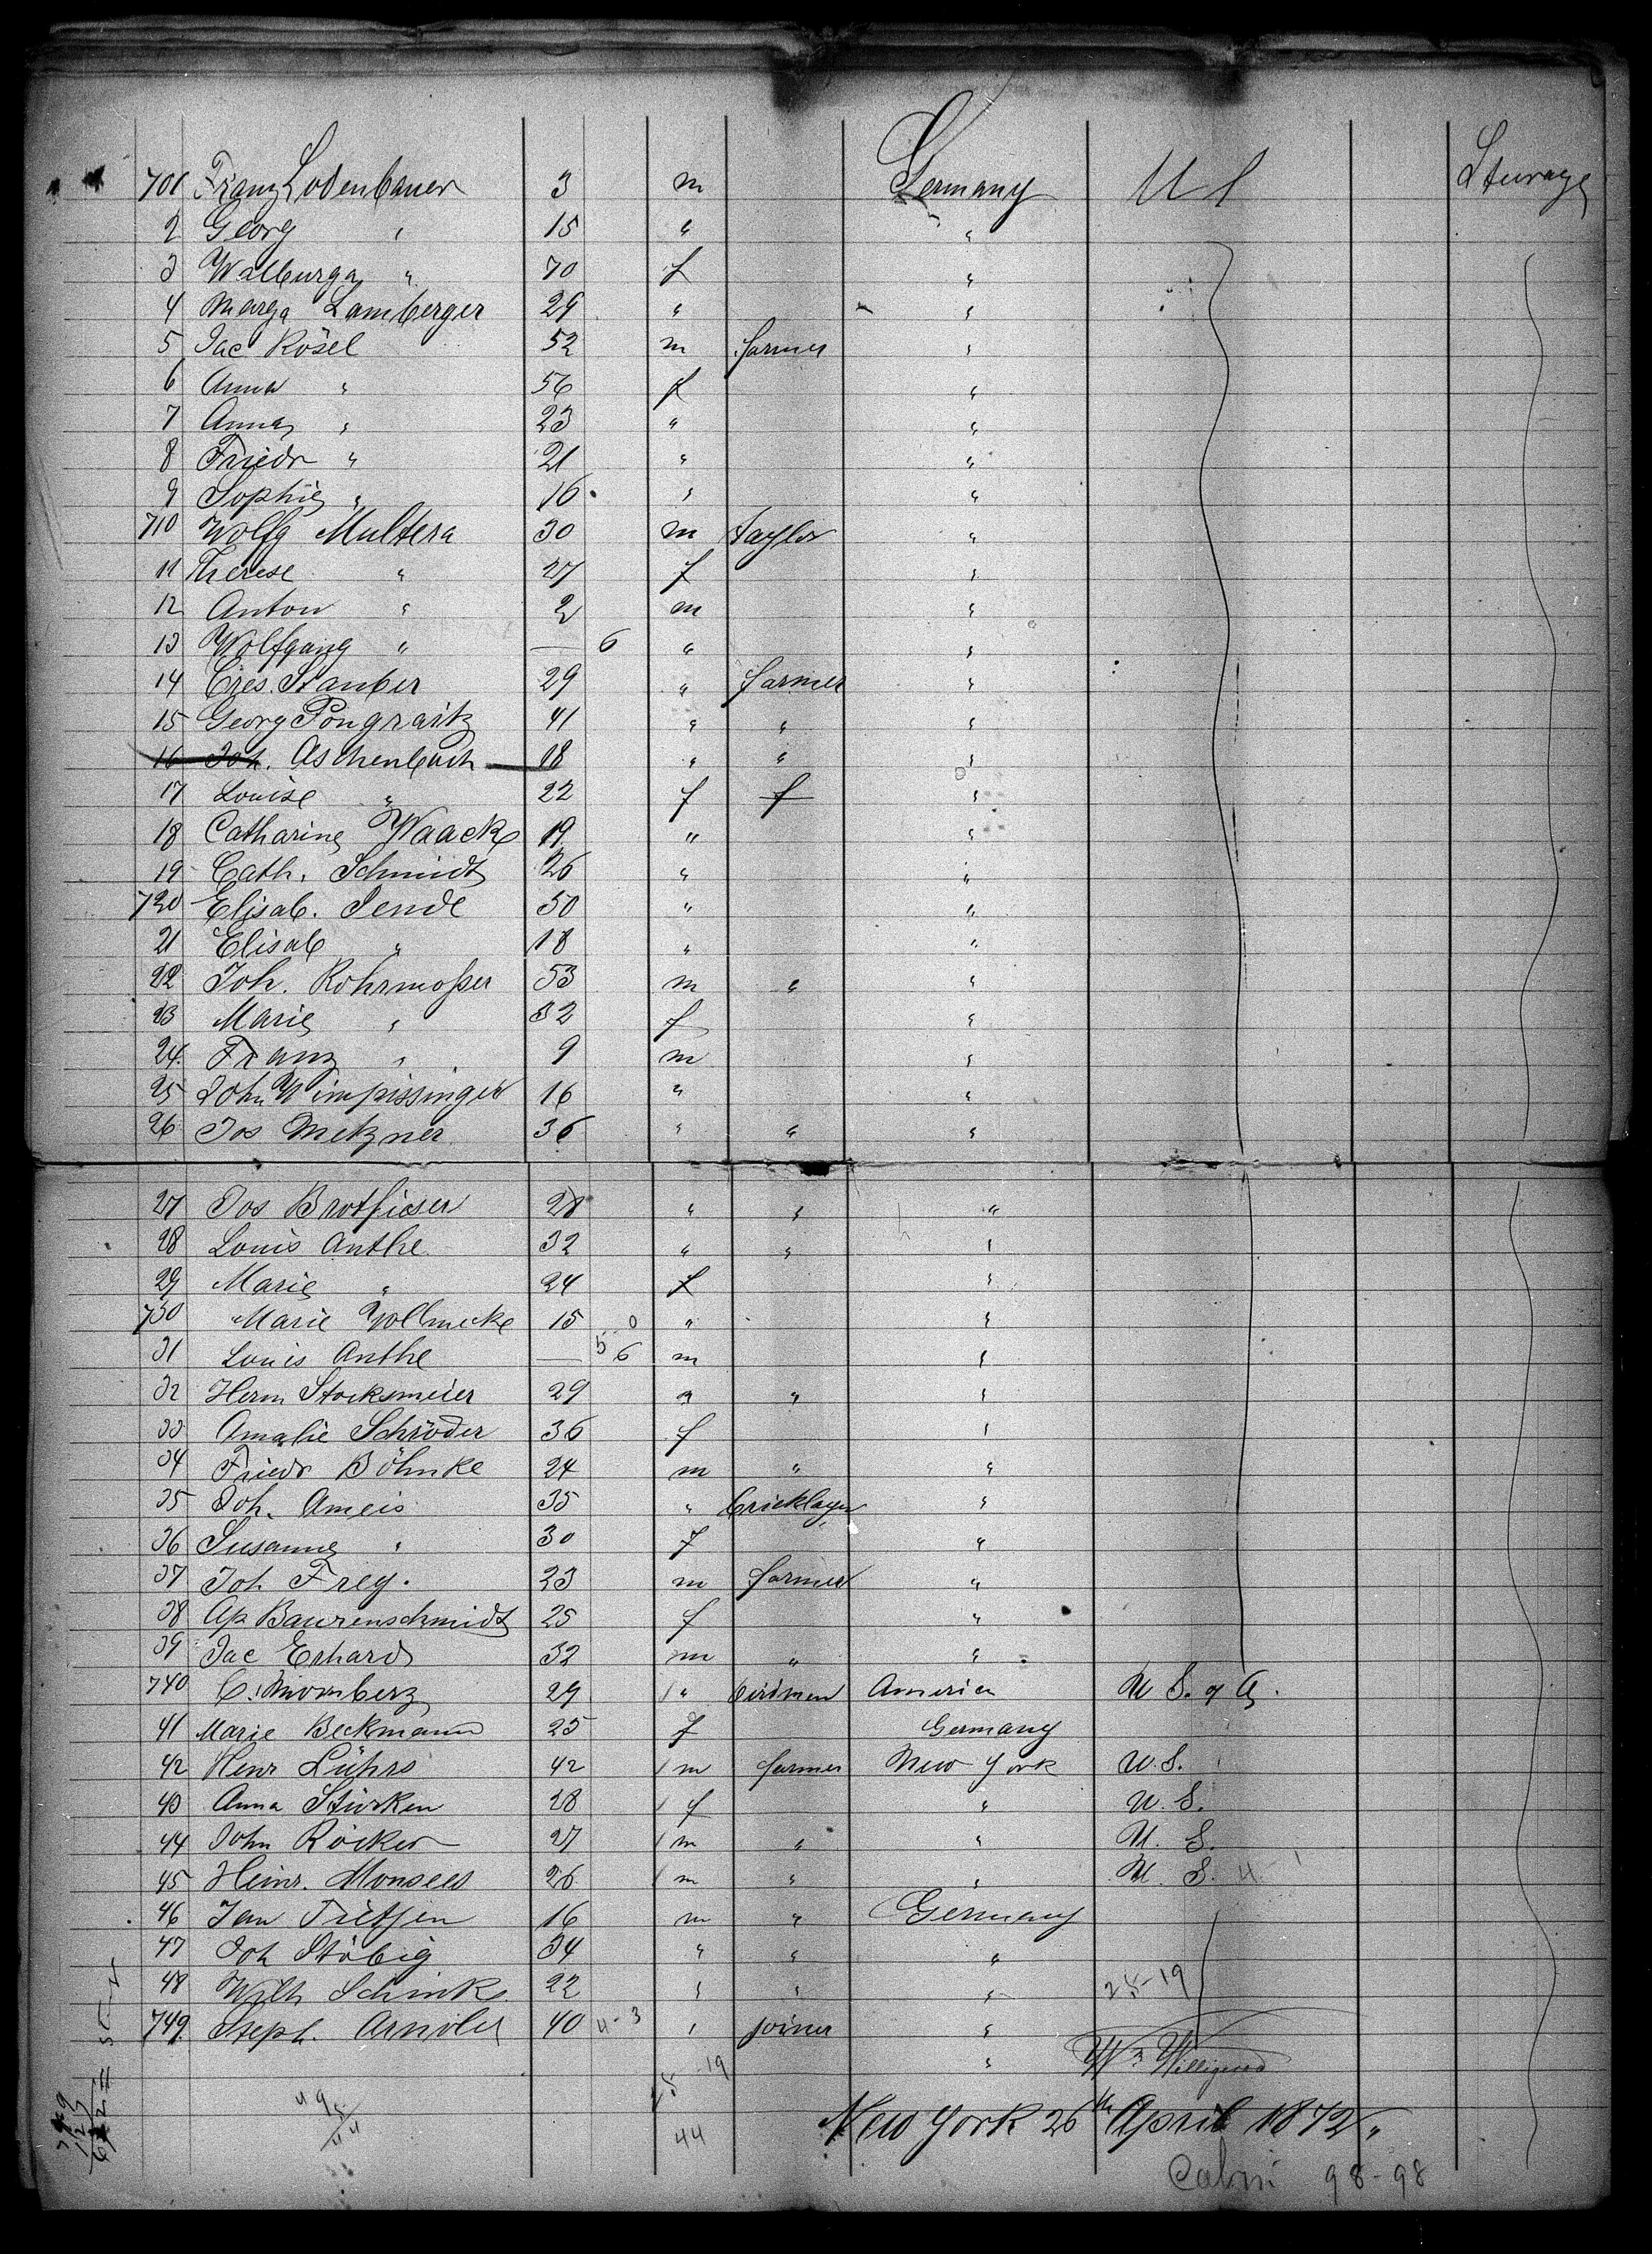 701 Franz Lodenbauer 3 m Germany U S Steerage
2 Georg " 15 " "
3 Walburga " 70 f "
4 Marga Lamberger 29 " "
5 Jac Rösel 52 m farmer "
6 Anna " 56 f "
7 Anna " 23 " "
8 Friedr " 21 " "
9 Sophie " 16 " "
710 Wolfg Multera 30 m Taylor "
11 Therese " 27 f "
12 Anton " 2 m "
13 Wolfgang " — 6 " "
14 Cres. Stauber 29 " farmer "
15 Georg Pongraitz 41 " " "
16 Joh. Aschenbach 18 " " "
17 Louise " 22 f f "
18 Catharine Waack 19 " "
19 Cath. Schmidt 26 " "
720 Elisab. Jende 50 " "
21 Elisab " 18 " "
22 Joh. Rohrmoßer 53 m " "
23 Marie " 32 f "
24 Franz " 9 m "
25 John Wimpissinger 16 " "
26 Jos Metzner 36 " " "
27 Jos 28 " " "
28 Louis Anthe 32 " " "
29 Marie " 24 f "
730 Marie Vollmecke 15 " "
31 Louis Anthe — 6 m "
32 Herm Stocksmeier 29 " " "
33 Amalie Schröder 36 f "
34 Friedr Böhnke 24 m " "
35 Joh. Ameis 35 " bricklayer "
36 Susanne " 30 f "
37 Joh Frey. 23 m farmer "
38 Ap Baurenschmidt 25 f "
39 Jac Erhard 32 m " "
740 C. 29 " America U S. of A.
41 Marie Beckmann 25 f Germany
42 Henr Lührs 42 m farmer New York U. S.
43 Anna Stürken 28 f " U. S.
44 John Röcker 27 m " " U. S.
45 Heinr. Monsees 26 m " " U. S. 4-1
46 Jan Tietjen 16 m " Germany
47 Joh Stöbig 34 " " "
48 Wilh Schinks 22 " " " 25-19
749 Steph. Arnoler 40 4-3 " joiner "
" Wm
25-19
495
44
44
New York 26th April 1872
98-98
749